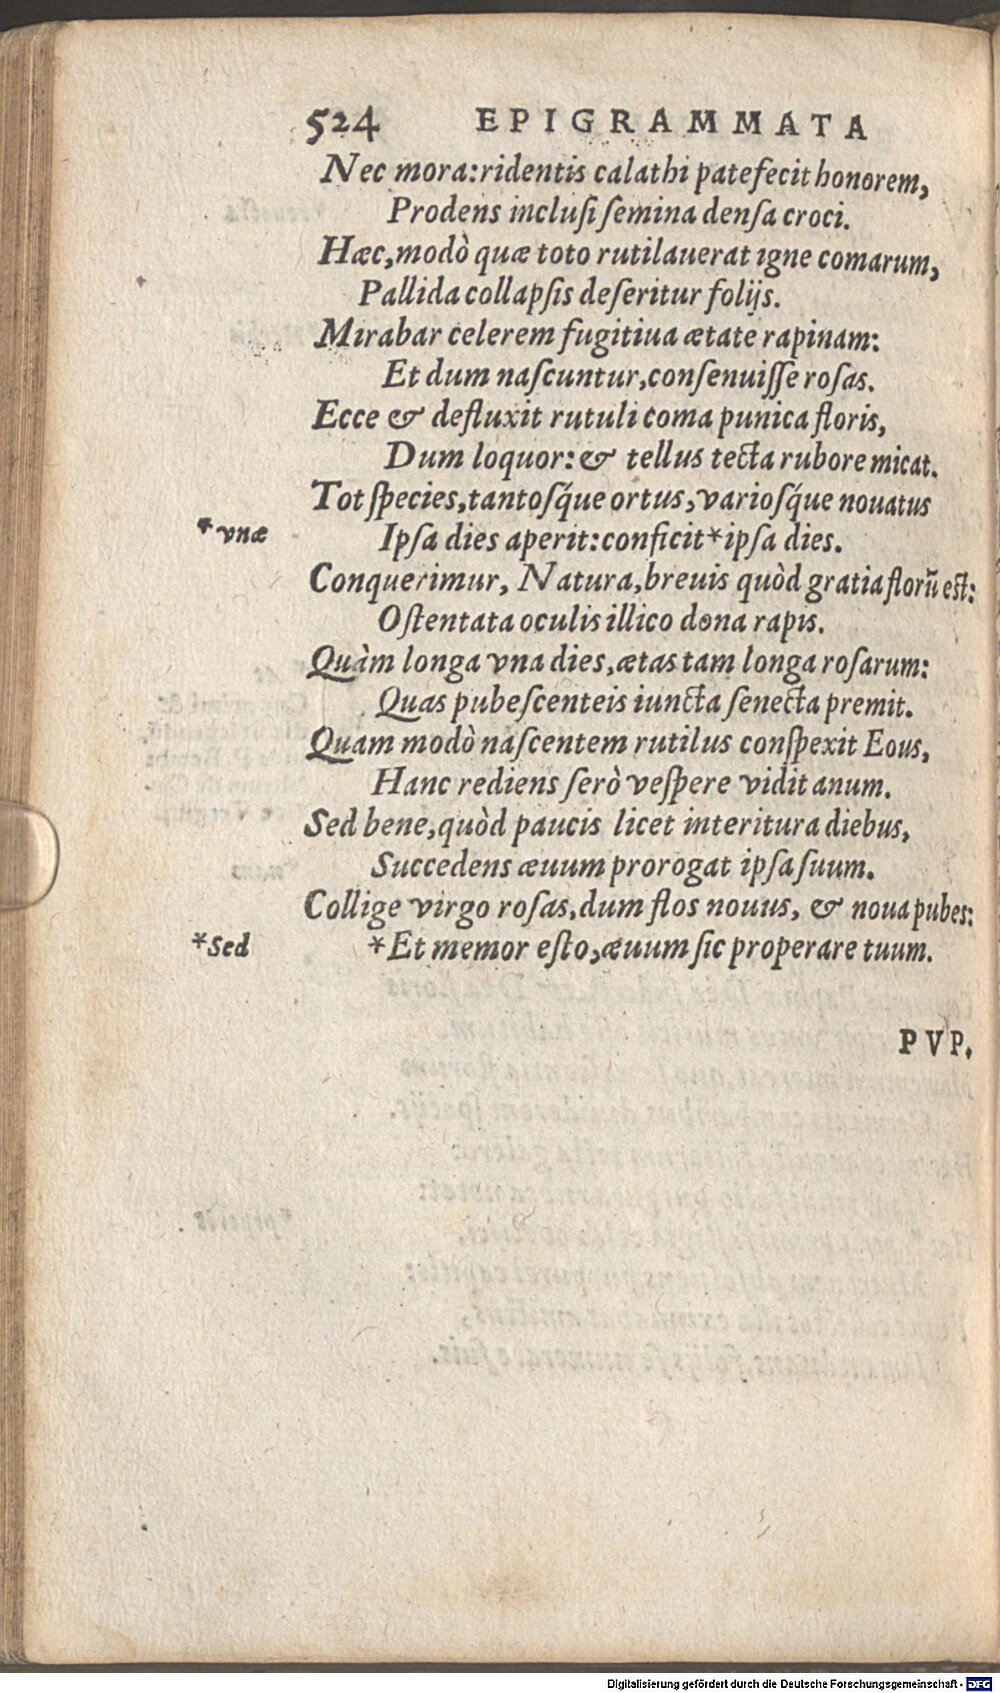 524 EPIGRAMMATA
Nec mora: ridentis calathi patefecit honorem,
Prodens inclusi semina densa croci.
Hæc, modò quæ toto rutilauerat igne comarum,
Pallida collapsis deseritur folijs.
Mirabar celerem fugitiua ætate rapinam:
Et dum nascuntur, consenuisse rosas.
Ecce & defluxit rutuli coma punica floris,
Dum loquor: & tellus tecta rubore micat.
Tot species, tantosq́ue ortus, variosq́ue nouatus
*vnæ Ipsa dies aperit: conficit *ipsa dies.
Conquerimur, Natura, breuis quòd gratia florũ est:
Ostentata oculis illico dona rapis.
Quàm longa vna dies, ætas tam longa rosarum:
Quas pubescenteis iuncta senecta premit.
Quam modò nascentem rutilus conspexit Eous,
Hanc rediens serò vespere vidit anum.
Sed bene, quòd paucis licet interitura diebus,
Succedens æuum prorogat ipsa suum.
Collige virgo rosas, dum flos nouus, & noua pubes:
*Sed *Et memor esto, æuum sic properare tuum.
PVP.
Digitalisierung gefördert durch die Deutsche Forschungsgemeinschaft - DFG